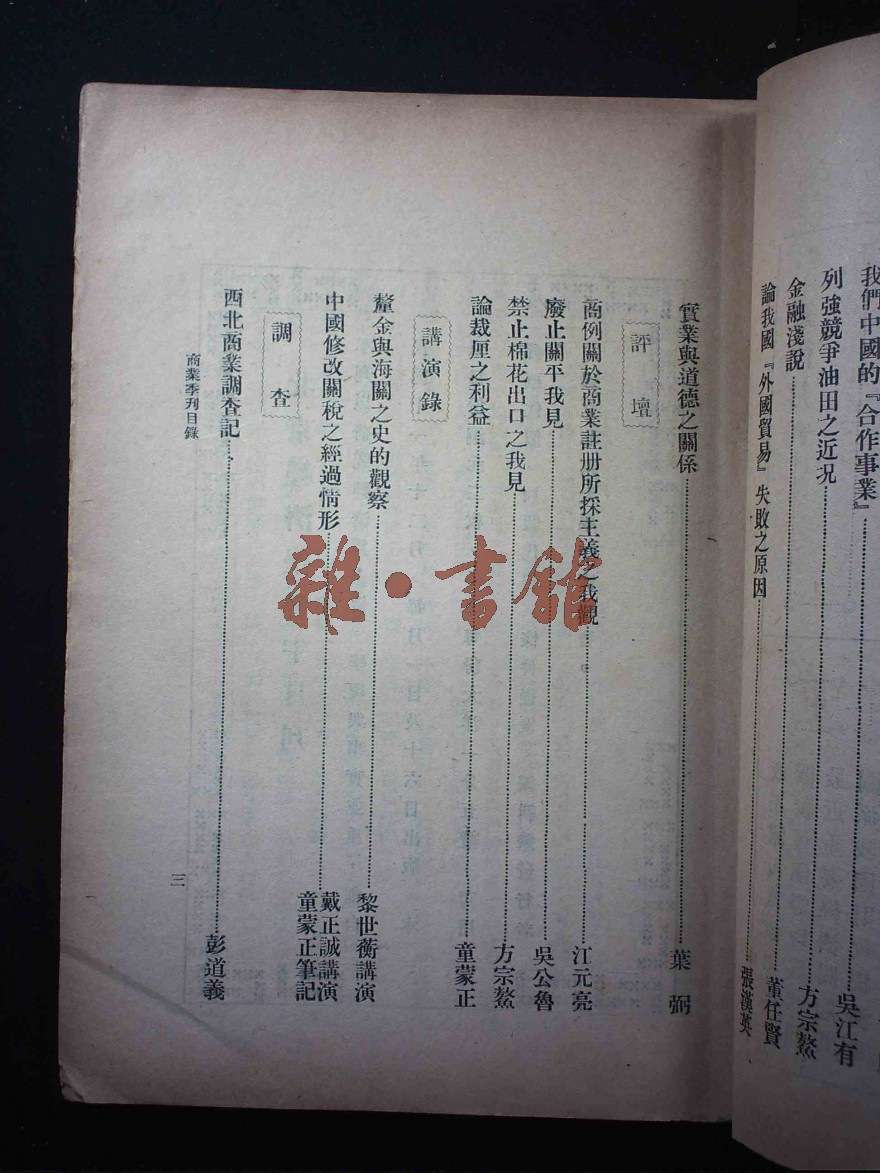 我們中國的『合作事業』……吳江有
列強競爭油田之近況……方宗鰲
金融淺說……董任賢
論我國『外國貿易』失敗之原因……張漢英
實業與道德之關係……葉弼
評壇
商例關於商業註册所採主義之我觀……江元亮
廢止關平我見……吳公魯
禁止棉花出口之我見……方宗鰲
論裁厘之利益……童蒙正
講演錄
釐金與海關之史的觀察……黎世蘅講演
中國修改關稅之經過情形……戴正誠講演
童蒙正筆記
調查
西北商業調查記……彭道義
商業季刊目錄
三
雜·書館